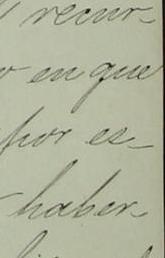 recur-
en que
por es-
haber